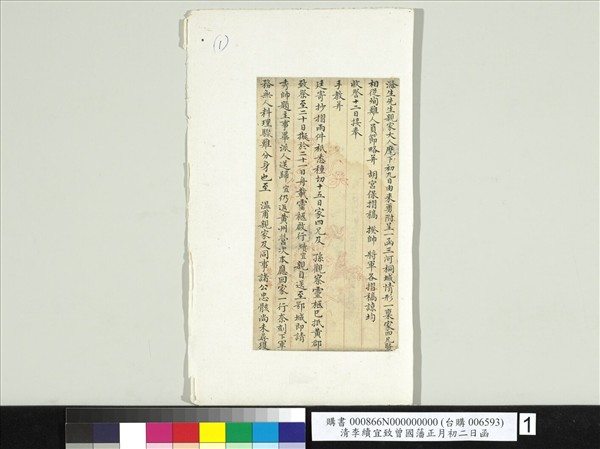 (1)
滌生先生親家大人麾下初九日由來勇附呈一函三河桐城情形一稟家四兄暨
相從殉難人員節略并 胡宮保摺稿 揆帥 將軍各摺稿諒均
收登十二日接奉
手教并
廷寄抄摺兩件祇悉種切十五日家四兄及 孫觀察靈柩已抵黃郡
致祭至二十日擬於二十一日舟載靈柩啟行續宜親自送至鄂城即請
希帥題主事畢派人送歸宜仍返黃州營次本應回家一行奈刻下軍
務無人料理驟難分身也至 溫甫親家及同事諸公忠骸尚未尋獲
購書 000866N000000000 (台購 006593)
清李續宜致曾國藩正月初二日函
1